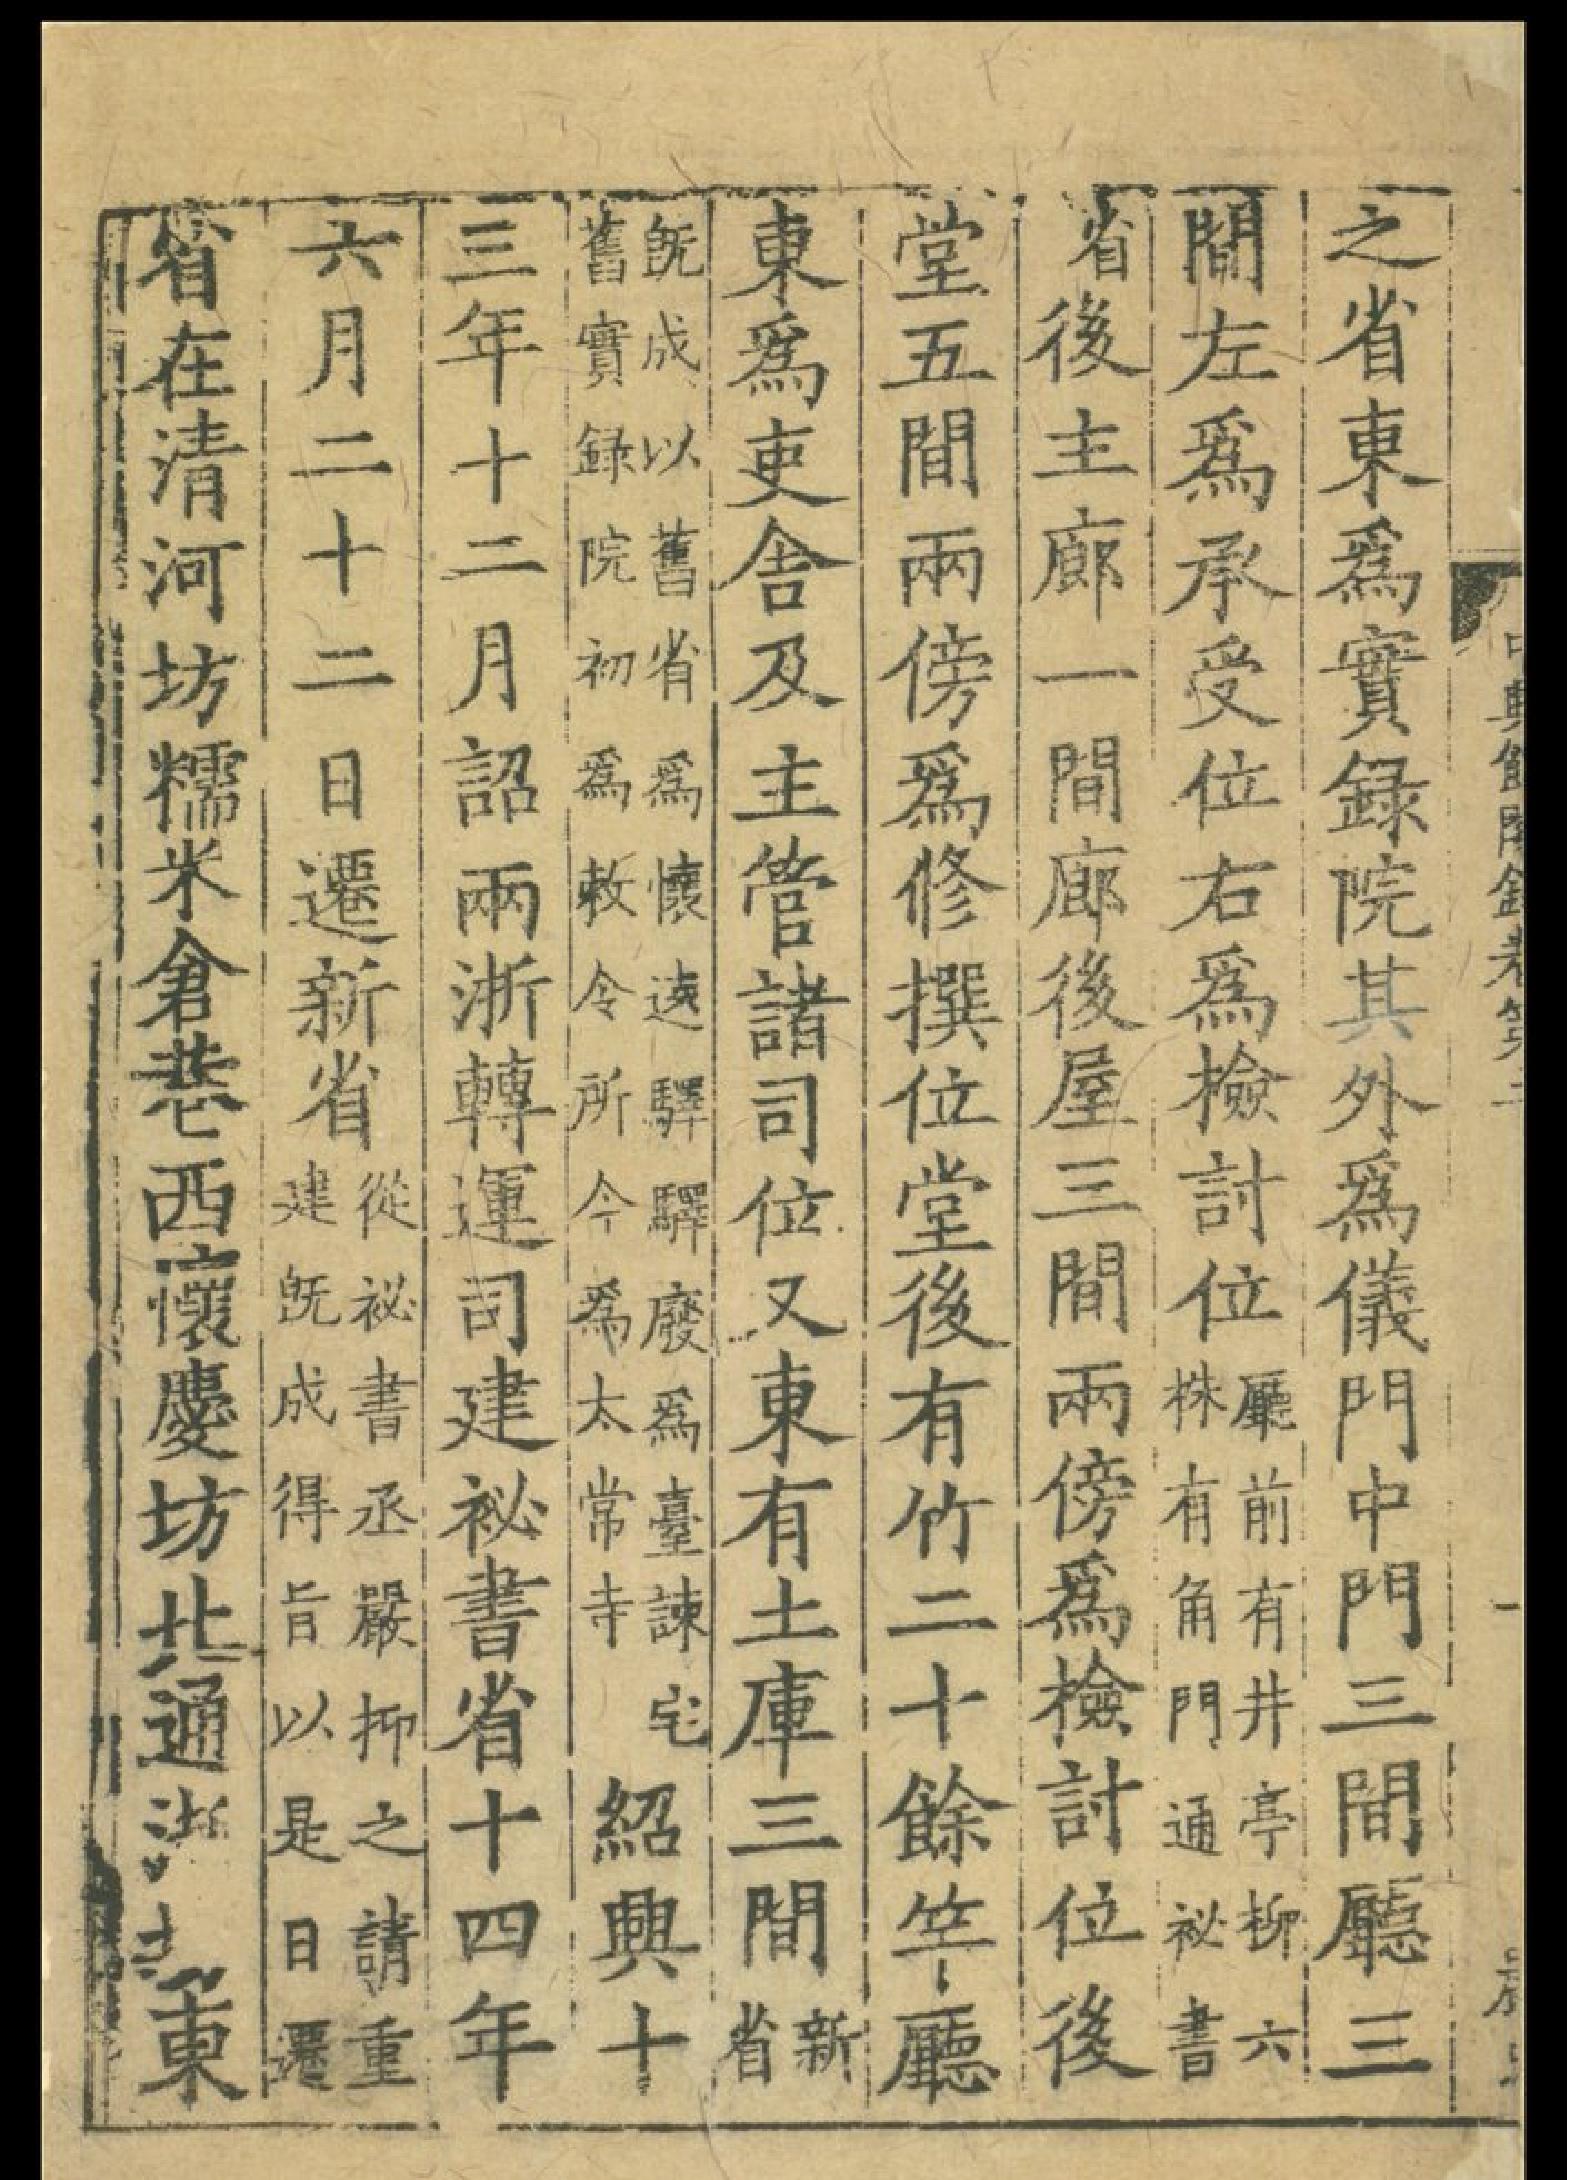 中興館閣録卷第二
一
之省東爲實録院其外爲儀門中門三間廳三
間左爲承受位右爲檢討位廳前有井亭柳六株有角門通祕書
省後主廊一間廊後屋三間兩傍爲檢討位後
堂五間兩傍爲修撰位堂後有竹二十餘竿廳
東爲吏舍及主管諸司位又東有土庫三間新省
旣成以舊省爲懷遠驛驛廢爲臺諫宅舊實録院初爲敕令所今爲太常寺紹興十
三年十二月詔兩浙轉運司建祕書省十四年
六月二十二日遷新省從祕書丞嚴抑之請重建旣成得旨以是日遷
省在清河坊糯米倉巷西懷慶坊北通浙東